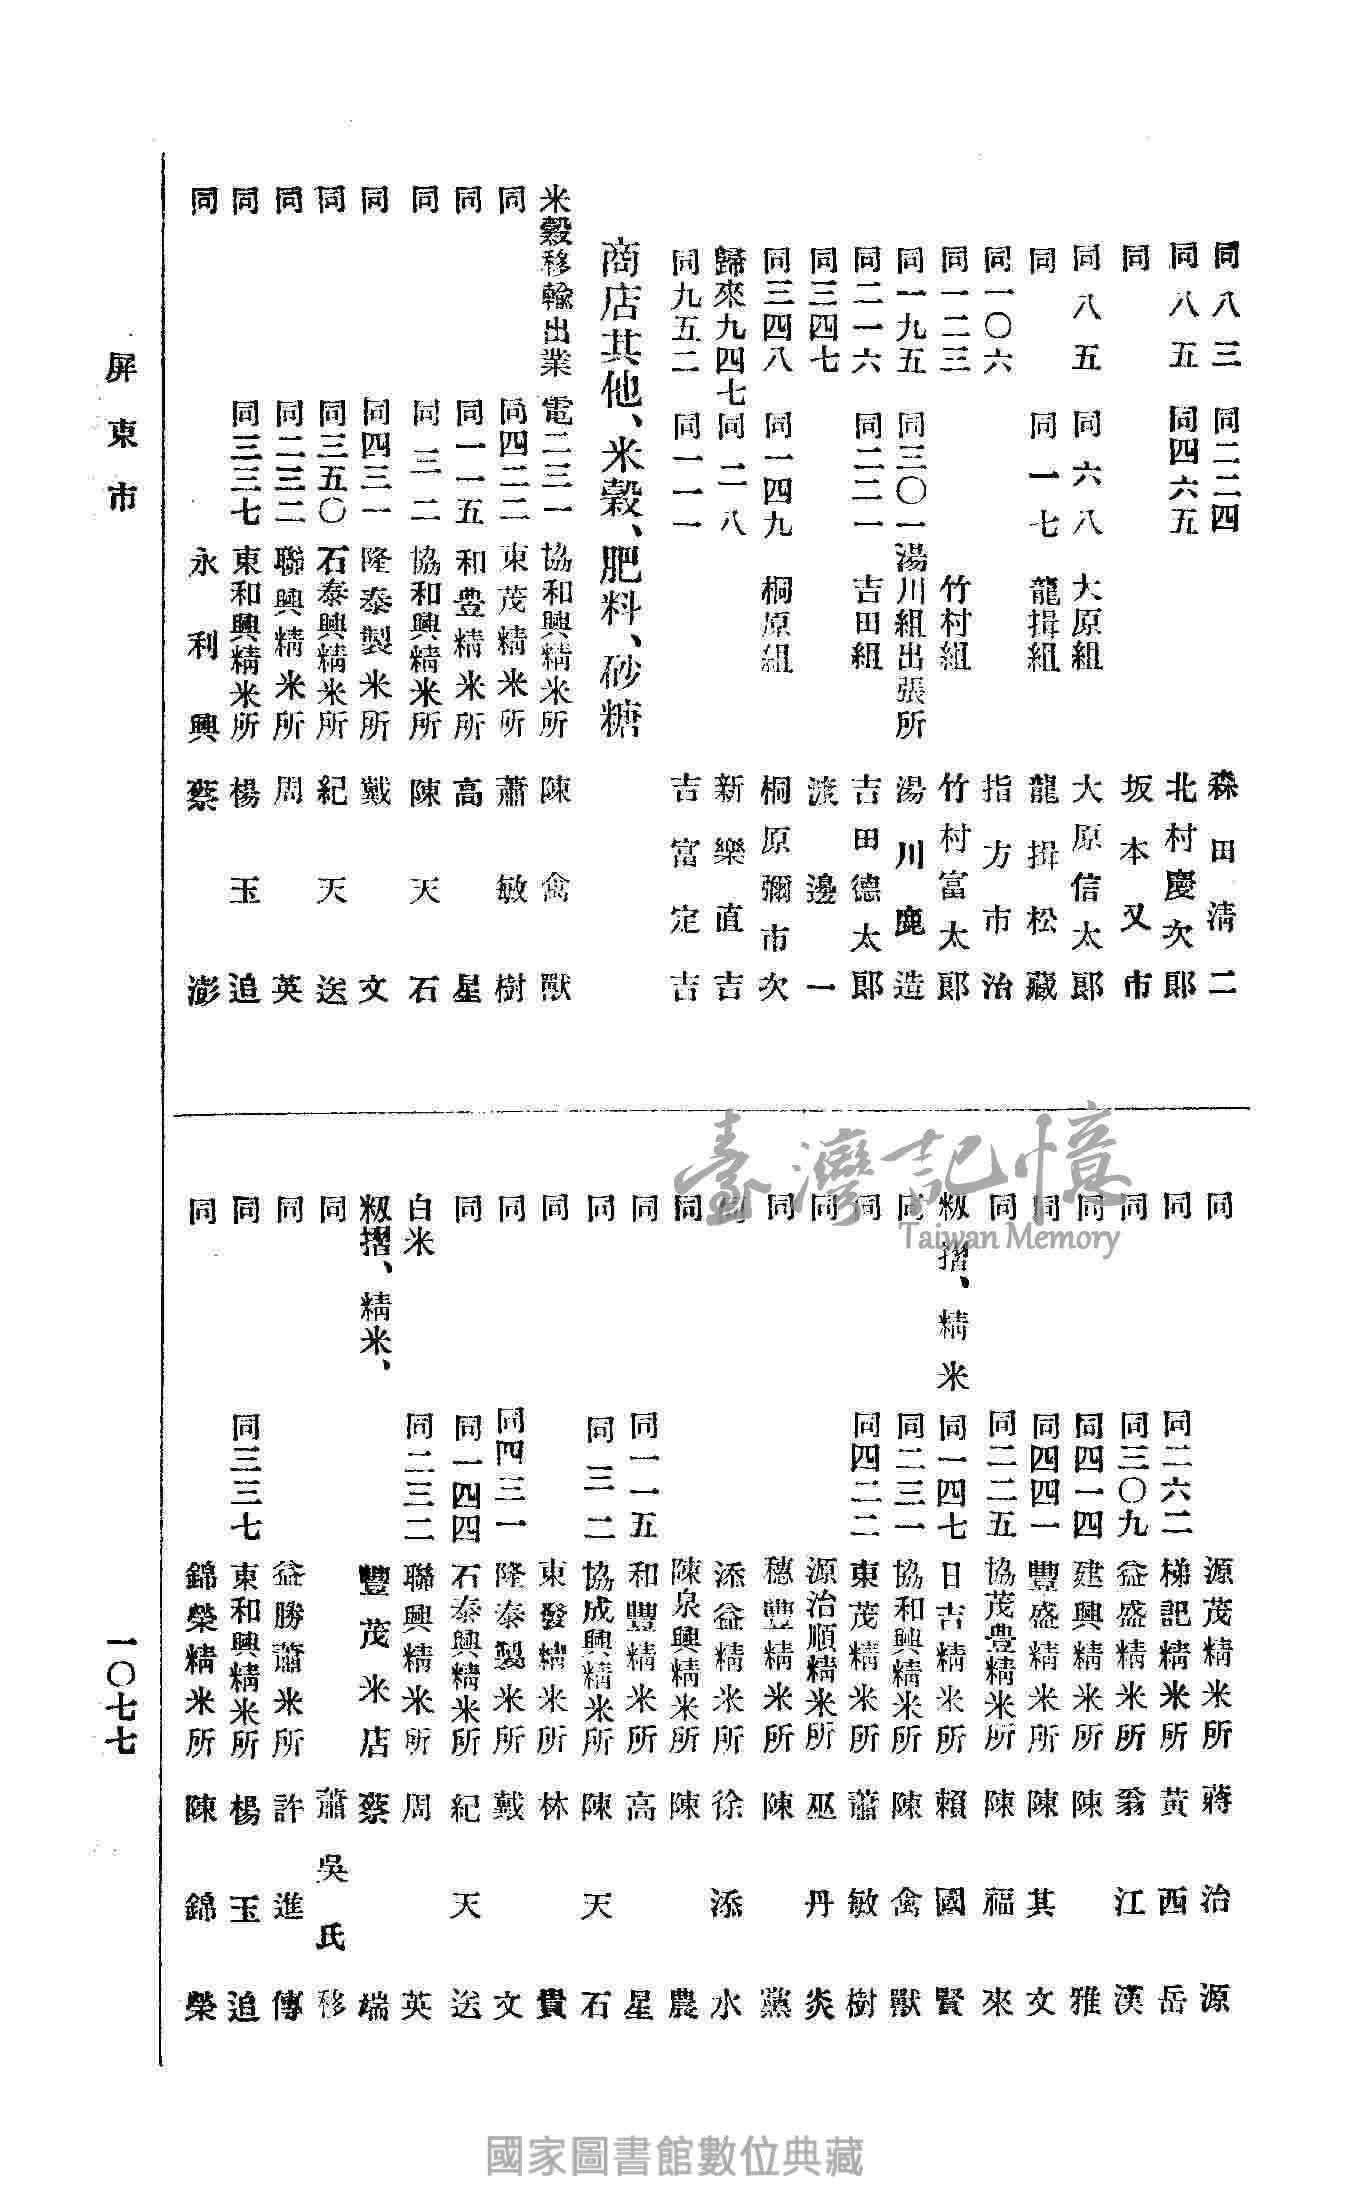 同八三 同二二四 森田清二
同八五 同四六五 北村慶次郎
同 坂本又市
同八五 同六八 大原組 大原信太郎
同 同一七 龍揖組 龍揖松藏
同一〇六 指方市治
同一二三 竹村組 竹村富太郎
同一九五 同三〇一 湯川組出張所 湯川鹿造
同二一六 同二二一 吉田組 吉田德太郎
同三四七 渡邊一
同三四八 同一四九 桐原組 桐原彌市次
歸來九四七 同二八 新樂直吉
同九五二 同一一一 吉富定吉
商店其他、米穀、肥料、砂糖
米穀移輸出業 電二三一 協和興精米所 陳禽獸
同 同四二二 東茂精米所 蕭敏樹
同 同一一五 和豊精米所 高星
同 同三二 協和興精米所 陳天石
同 同四三一 隆泰製米所 戴文
同 同三五〇 石泰興精米所 紀天送
同 同二三二 聯興精米所 周英
同 同三三七 東和興精米所 楊玉追
同 永利興 蔡澎
同 源茂精米所 蔣治源
同 同二六二 梯記精米所 黃西岳
同 同三〇九 益盛精米所 翁江漢
同 同四一四 建興精米所 陳雅
同 同四四一 豐盛精米所 陳其文
同 同二二五 協茂豊精米所 陳福來
籾摺、精米 同一四七 日吉精米所 賴國賢
同 同二三一 協和興精米所 陳禽獸
同 同四二二 東茂精米所 蕭敏樹
同 源治順精米所 巫丹炎
同 穗豐精米所 陳黨
同 添益精米所 徐添水
同 陳泉興精米所 陳農
同 同一一五 和豐精米所 高星
同 同三二 協成興精米所 陳天石
同 東發精米所 林貴
同 同四三一 隆泰製米所 戴文
同 同一四四 石泰興精米所 紀天送
白米 同二三二 聯興精米所 周英
籾摺、精米、 豐茂米店 蔡端
同 蕭吳氏移
同 益勝蕭米所 許進傳
同 同三三七 東和興精米所 楊玉追
同 錦榮精米所 陳錦榮
屏東市
一〇七七
臺灣記憶
Taiwan Memory
國家圖書館數位典藏